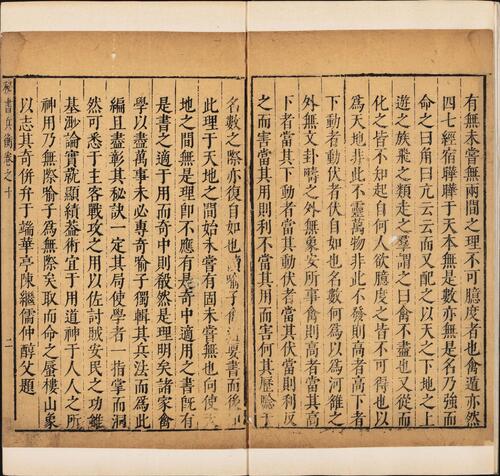 有無未嘗無兩間之理不可臆度者也禽遁亦然
四七經宿曄曄于天本無是數亦無是名乃強而
命之曰角曰亢云云而又配之以天之下地之上
遊之族飛之類走之羣謂之曰禽不盡也又從而
化之皆不知起自何人欲臆度之皆不可得也以
爲天地非此不靈萬物非此不發則高者高下者
下動者動伏者伏自如也名數何爲以爲河雒之
外無文卦疇之外無象安所事禽則高者當其高
下者當其下動者當其動伏者當其伏當則利反
之而害當其用則利不當其用而害何其歷騐于
名數之際亦復自如也喻子有遁要書而後
此理于天地之間始未嘗有固未嘗無也向使
地之間無是理卽不應有是奇中適用之書旣有
是書之適于用而奇中則殺然是理明矣諸家禽
學以盡萬事未必專奇喻子獨輯其兵法而爲此
編且盡彰其秘訣一定其局使學者一指掌而洞
然可悉于主客戰攻之用以佐討賊安民之功雖
基渺論實就顯績葢術宜于用道神于人人之所
神用乃無際喻子爲無際矣取而命之蜃樓山象
以志其奇併弁于端華亭陳繼儒仲醇父題
秘書兵衡卷之十
二